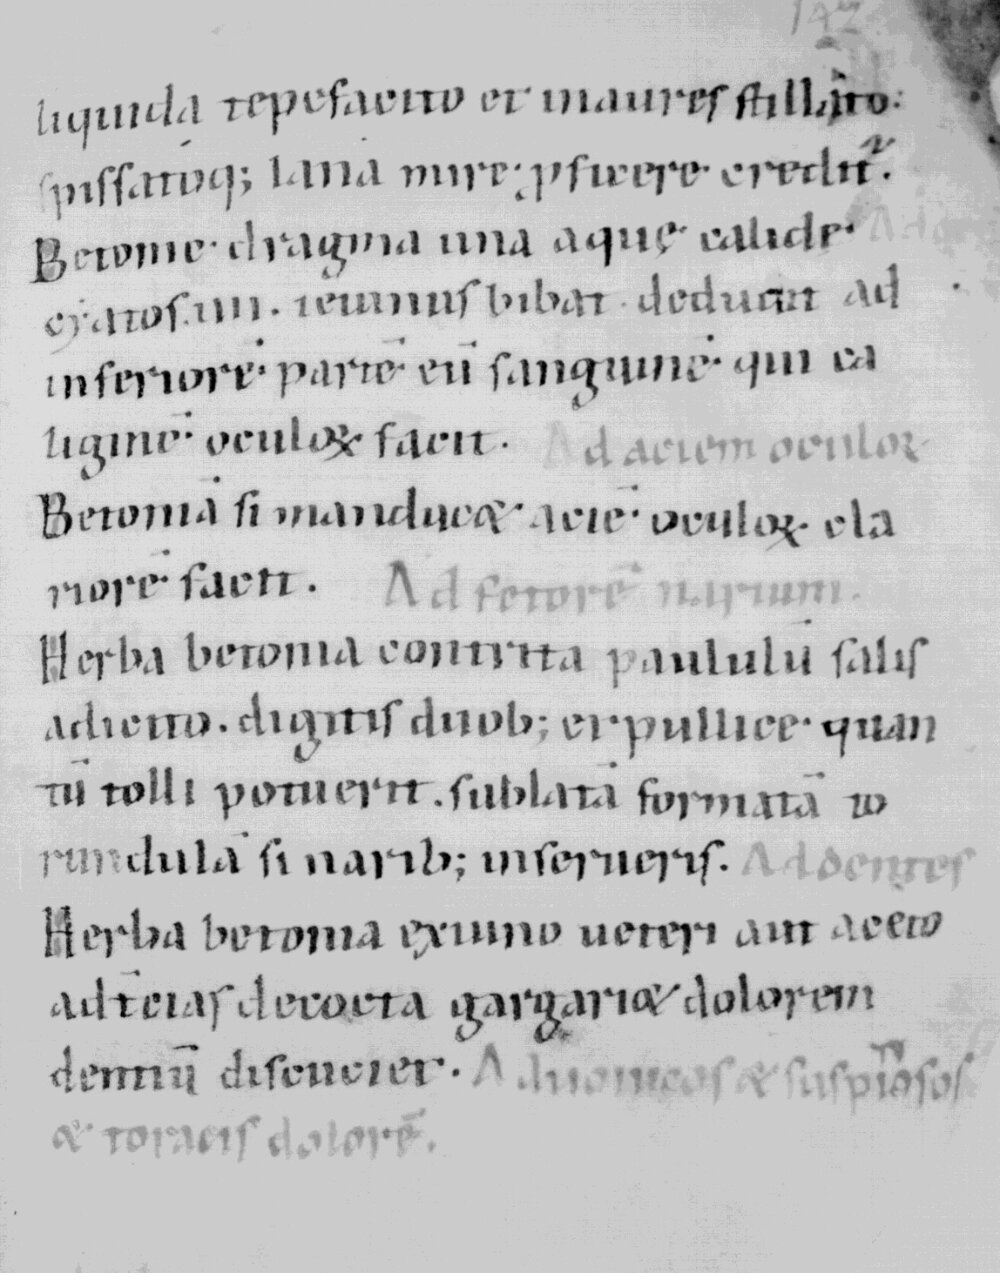 142
liquida tepefacito et inaures stillato:
spissatoq; lana mire· ꝑficere credit᷑.
Betonie· dragma una aquę· calide· Ad
cyatos.iiii. ieiunus bibat· deducit ad
inferiorē· partē· eū sanguinē· qui ca
liginē· oculoꝝ facit. Ad aciem oculoꝝ
Betoniā si manducæ· aciē· oculoꝝ cla
riorē· facit. Ad fetorē narium.
Herba betonia contrita paululū salis
adiecto. digitis duob; et pullice· quan
tū tolli potuerit. sublatā formatā ro
tundulā si narib; inserueris. Ad dentes
Herba betonia exuino ueteri aut aceto
adt̄cias decocta gargariæ dolorem
dentiū discuciet. Ad uomicos & suspiosos
& toracis dolorē.